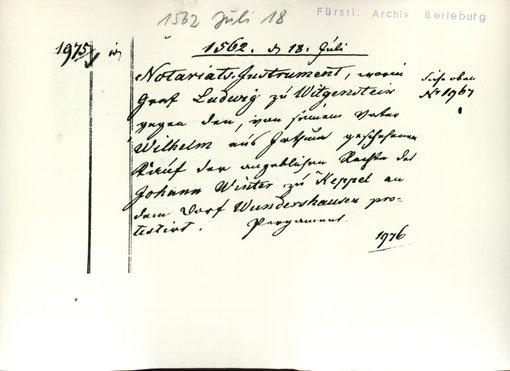 1562 Juli 18
Fürstl. Archiv Berleburg
1975
1562. d. 18. Juli
Notariats-Instrument, worin
Graf Ludwig zu Witgenstein
gegen den, von seinem Vater
Wilhelm aus Irthum geschehenen
Kauf der angeblichen Rechte des
Johann Winter zu Keppel an
dem Dorf Wundershausen pro-
testirt. Pergament.
Siehe oben
No 1967
1976